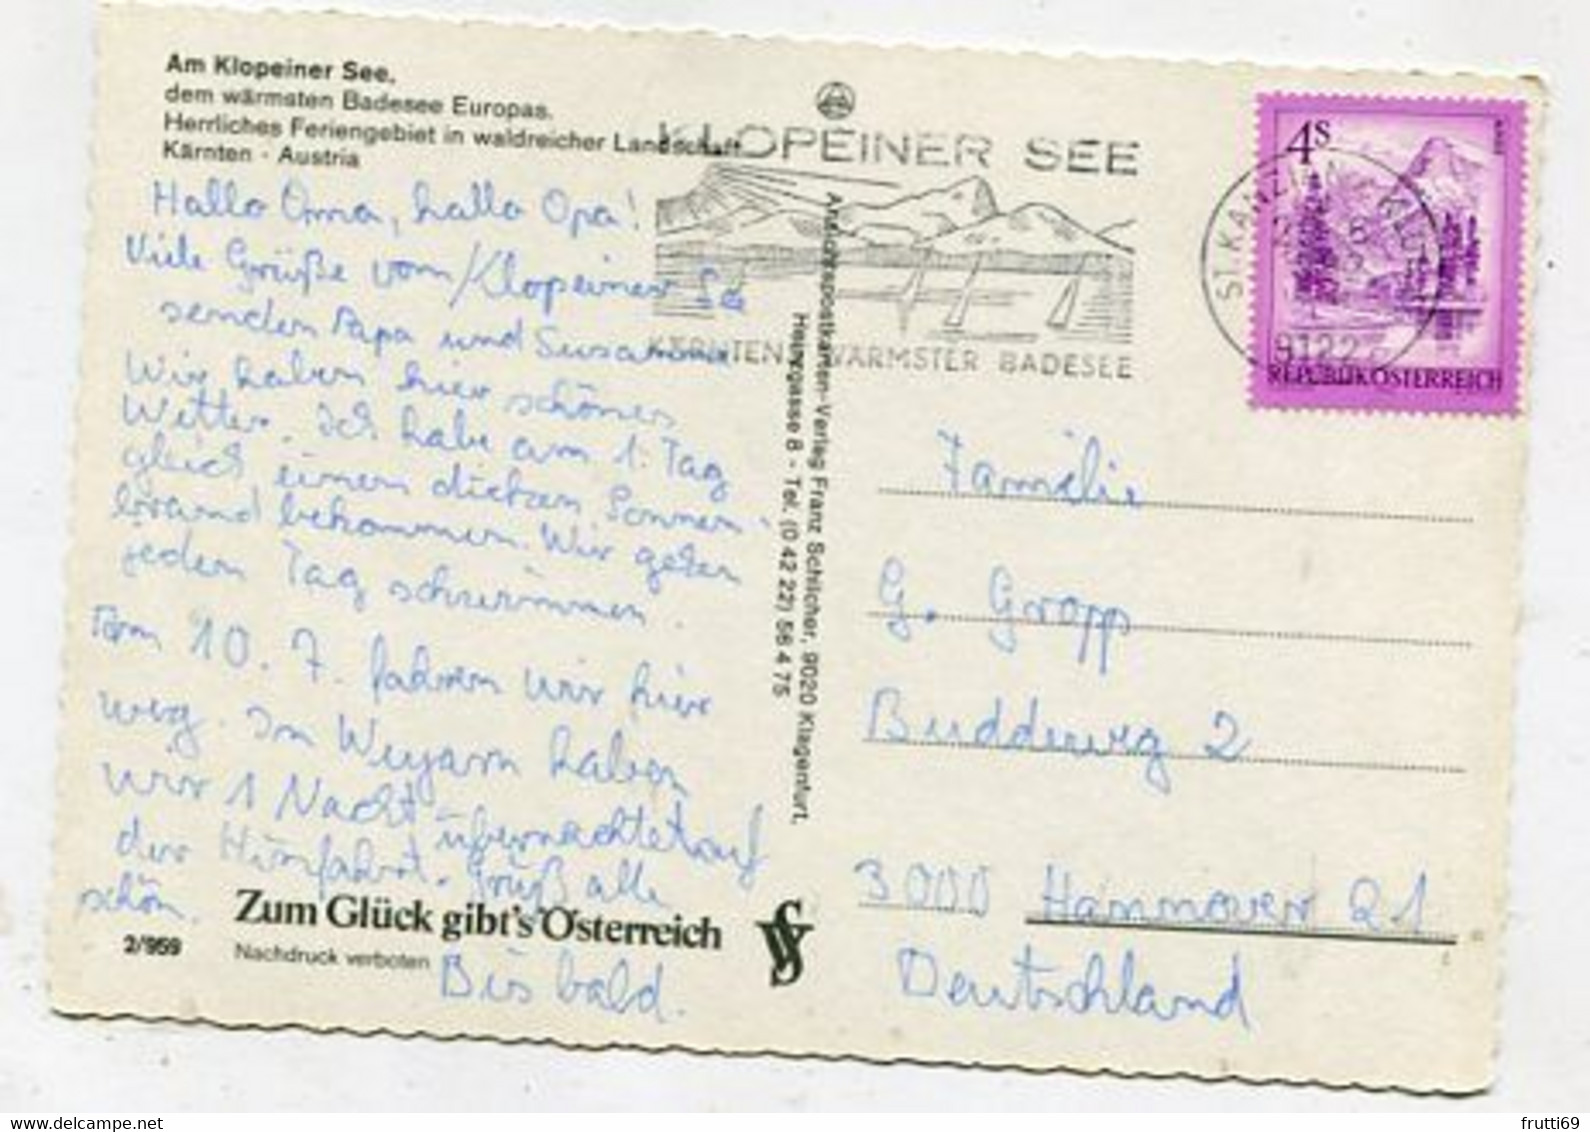 Am Klopeiner See,
dem wärmsten Badesee Europas.
Herrliches Feriengebiet in waldreicher Landschaft
Kärnten - Austria
Hallo Oma, hallo Opa!
Viele Grüße vom Klopeiner See
senden Papa und Susanne
Wir haben hier schönes
Wetter. Ich habe am 1. Tag
gleich einen dicken Sonnen-
brand bekommen. Wir gehen
jeden Tag schwimmen.
Am 10. 7. fahren wir hier
weg. In Weyarn haben
wir 1 Nacht übernachtet auf
der Hinfahrt. Grüß alle
schön.
Bis bald.
Zum Glück gibt's Österreich
2/959
Nachdruck verboten
Ansichtspostkarten-Verlag Franz Schilcher, 9020 Klagenfurt,
Herrengasse 8 - Tel. (0 42 22) 56 4 75
KLOPEINER SEE
KÄRNTENS WÄRMSTER BADESEE
ST.KANZIAN
9122
4S
REPUBLIK ÖSTERREICH
Familie
G. Gropp
Buddeweg 2
3000 Hannover 21
Deutschland
frutti69
www.delcampe.net